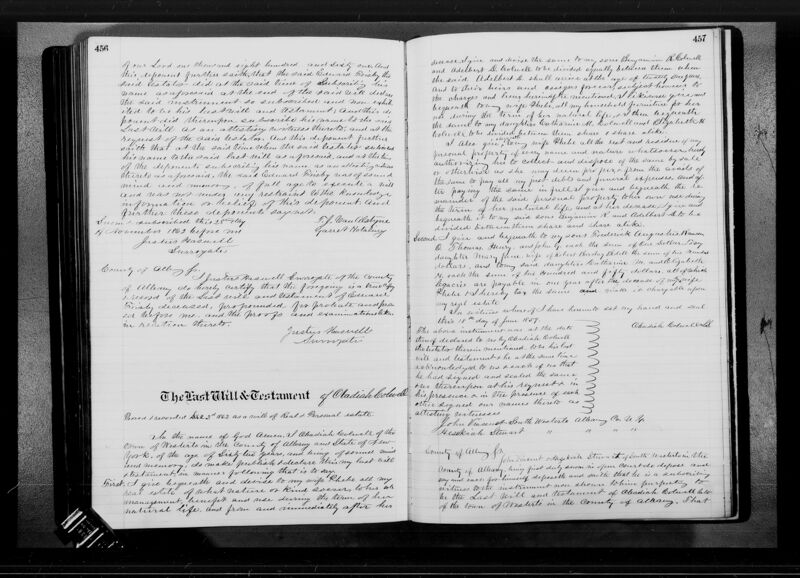 456
of our Lord one thousand eight hundred and sixty one And
this deponent further saith, that the said Edward Brisby the
said testator did at the said time of subscribing his
name as aforesaid at the end of the said will declare
the said instrument so subscribed and now exhib
ited to be his last will and testament; And this de
ponent did thereupon subscribe his name to the said
last will as an attesting witness thereto, and at the
request of the said testator. And this deponent further
saith that at the said time when the said testator subscribed
his name to the said last will as aforesaid, and at the time
of the deponents subscribing his name as an attesting witness
thereto as aforesaid, the said Edward Brisby was of sound
mind and memory, of full age to execute a will
and was not under any restraint to the knowledge
information or belief of this deponent And
further these deponents say not.
Sworn & subscribed this day
of November 1863 before me
Justus Haswell
Surrogate
Garret
County of Albany Ss.
I Justus Haswell Surrogate of the County
of Albany do hereby certify that the foregoing is a true
record of the last will and testament of Edward
Brisby deceased, propounded for probate and pro
ved before me, and the proofs and examinations taken
in relation thereto.
Justus Haswell
Surrogate
The Last Will & Testament of Obadiah Colwell
Proved & recorded Dec 2d 1863 as a will of Real & Personal estate.
In the name of God Amen, I Obadiah Colwell of the
town of Westerlo in the County of Albany and State of New
York, of the age of Sixty two years, and being of sound mind
and memory, do make publish & declare this my last will
& testament in manner following that is to say.
First. I give bequeath and devise to my wife Phebe all my
real estate of what nature or kind soever, to her sole
management, benefit and use during the term of her
natural life, and from and immediately after her
457
decease I give and devise the same to my sons Benjamin R. Colwell
and Adelbert D. Colwell to be divided equally between them when
the said Adelbert D. shall arrive at the age of twenty one years,
and to their heirs and assigns forever, subject however to
the charges and liens hereinafter mentioned. I likewise give and
bequeath to my wife Phebe, all my household furniture for her
use during the term of her natural life, & then bequeath
the same to my daughters Catharine M. Colwell and Elizabeth H.
Colwell to be divided between them share & share alike.
I Also give to my wife Phebe all the rest and residue of my
personal property of every name and nature whatsoever, hereby
authorizing her to collect and dispose of the same by sale
or otherwise as she may deem proper, from the avails of
the same to pay all my just debts and funeral expenses and af
ter paying the same in full I give and bequeath the re
mainder of the said personal property to her own use during
the term of her natural life, and at her decease I give and
bequeath it to my said sons Benjamin R. and Adelbert D. to be
divided between them share and share alike.
Second. I give and bequeath to my sons Frederick Augustus, Ransom
O. Thomas, Henry, and John G. each the sum of five dollars. To my
daughter Mary Jane wife of Robert the sum of five hundred
dollars, and to my said daughters Catharine M. and Elizabeth
H. each the sum of two hundred and fifty dollars, all of which
legacies are payable in one year after the decease of my wife
Phebe & I hereby tax the same and make it chargeable upon
my real estate
In witness whereof I have hereunto set my hand and seal
this 10th day of June 1859.
Obadiah Colwell L.S.
The above instrument was at the date
thereof declared to us by Obadiah Colwell
the testator therein mentioned to be his last
will and testament & he at the same time
acknowledged to us & each of us that
he had signed and sealed the same
& we thereupon at his request & in
his presence & in the presence of each
other signed our names thereto as
attesting witnesses
John Vincent South Westerlo Albany Co. N.Y.
Hezekiah Stewart " " " "
County of Albany Ss.
John Vincent & Hezekiah Stewart of South Westerlo in the
County of Albany, being first duly sworn in open Court do depose and
say and each for himself deposeth and saith that he is a subscribing
witness to the instrument now shown to him purporting to
be the Last Will and testament of Obadiah Colwell late
of the town of Westerlo in the County of Albany. That